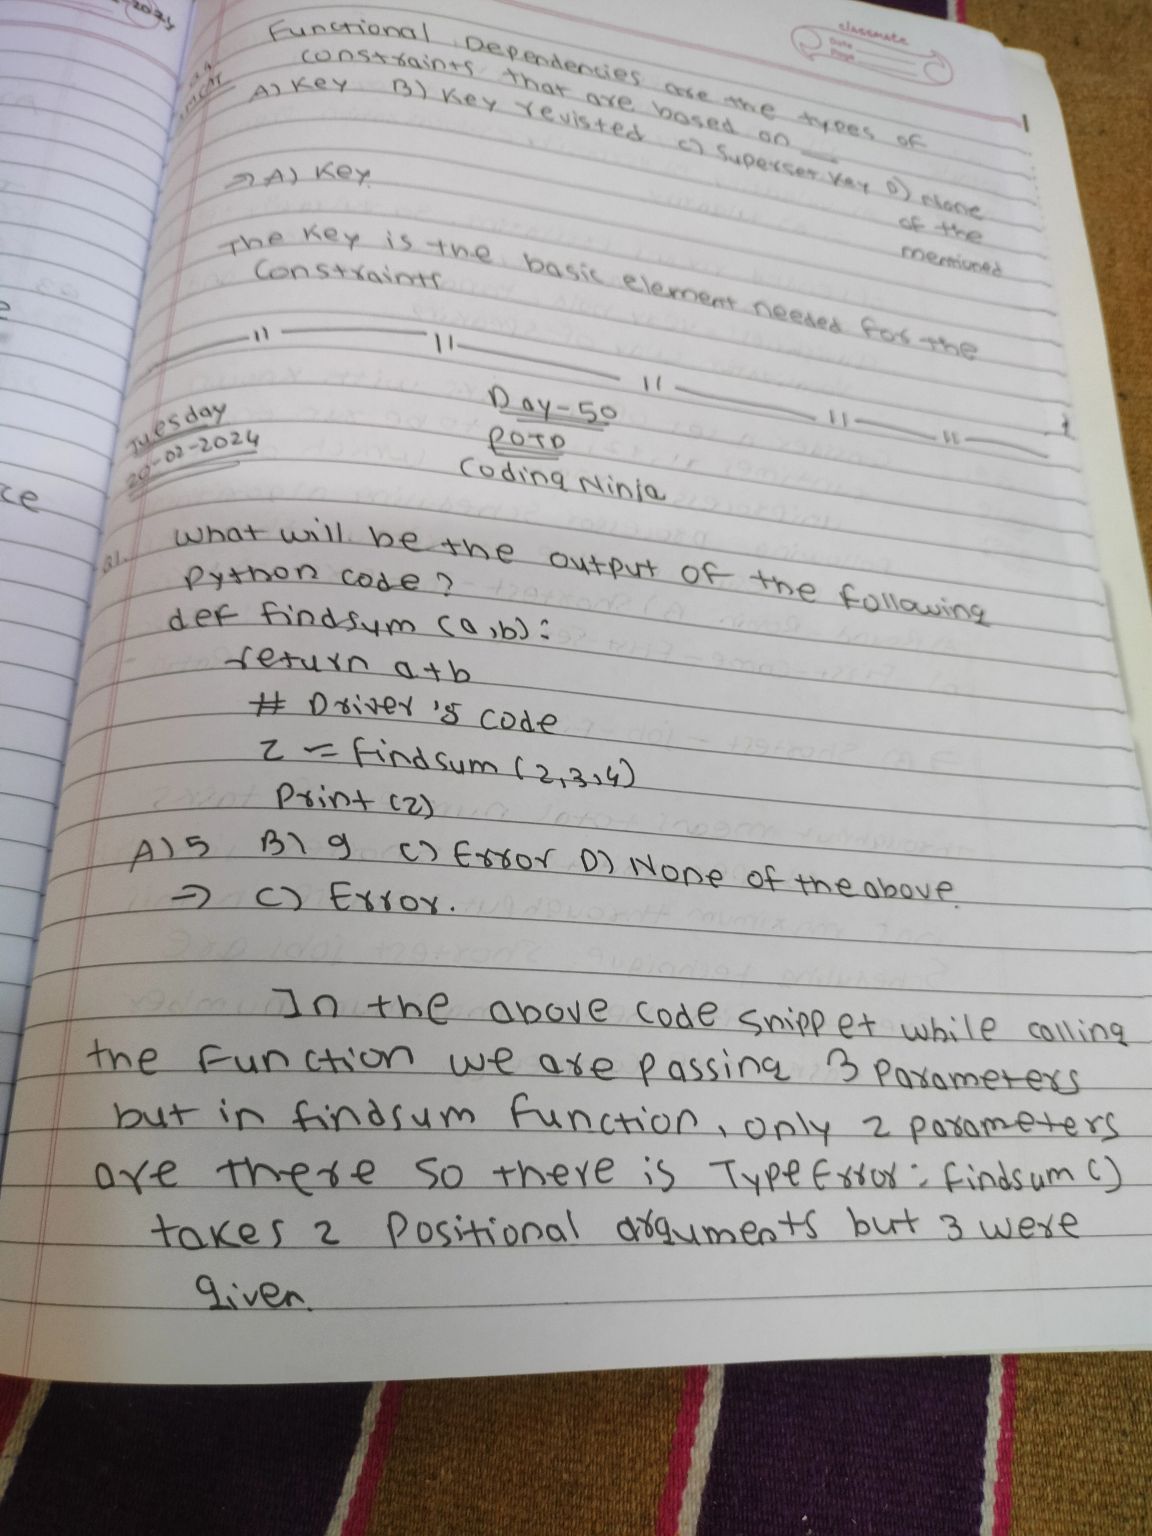 2024
classmate
Date
Page
Functional Dependencies are the types of
constraints that are based on __
A) Key B) Key revisted C) Superset Key D) None
of the
mentioned
⇒ A) Key.
The Key is the basic element needed for the
Constraints
Tuesday
20-02-2024
Day-50
POTD
Coding Ninja
Q1. What will be the output of the following
Python code?
def findsum (a,b):
return a+b
# Driver's code
z = findsum (2,3,4)
Print (z)
A) 5 B) 9 C) Error D) None of the above.
⇒ C) Error.
In the above code snippet while calling
the Function we are passing 3 Parameters
but in findsum function, only 2 parameters
are there so there is TypeError: findsum ()
takes 2 Positional arguments but 3 were
given.
ce